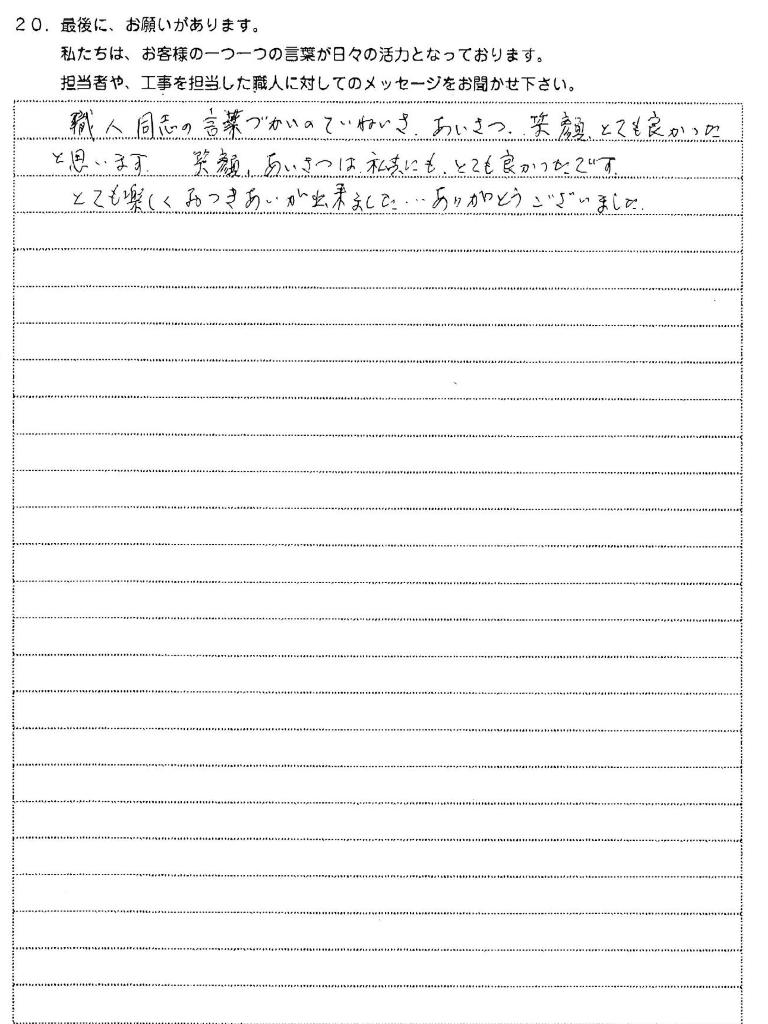 20. 最後に、お願いがあります。
私たちは、お客様の一つ一つの言葉が日々の活力となっております。
担当者や、工事を担当した職人に対してのメッセージをお聞かせ下さい。
職人同志の言葉づかいのていねいさ、あいさつ、笑顔、とても良かった
と思います。 笑顔、あいさつは私達にも、とても良かったです。
とても楽しくおつきあいが出来ました…ありがとうございました。